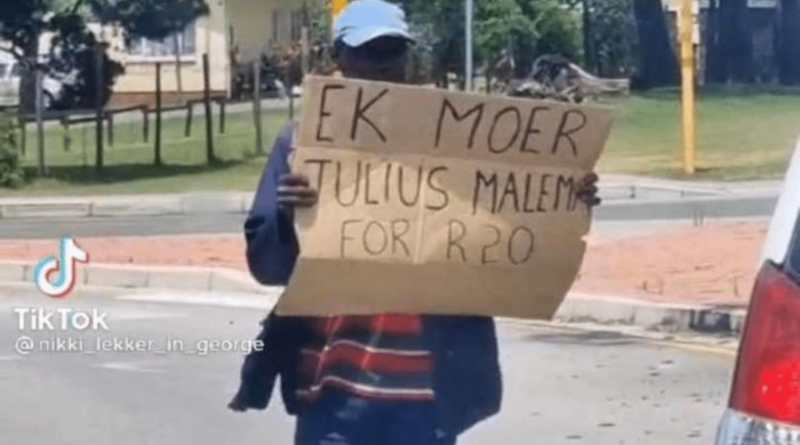 EK MOER
JULIUS MALEMA
FOR R20
TikTok
@nikki_lekker_in_george